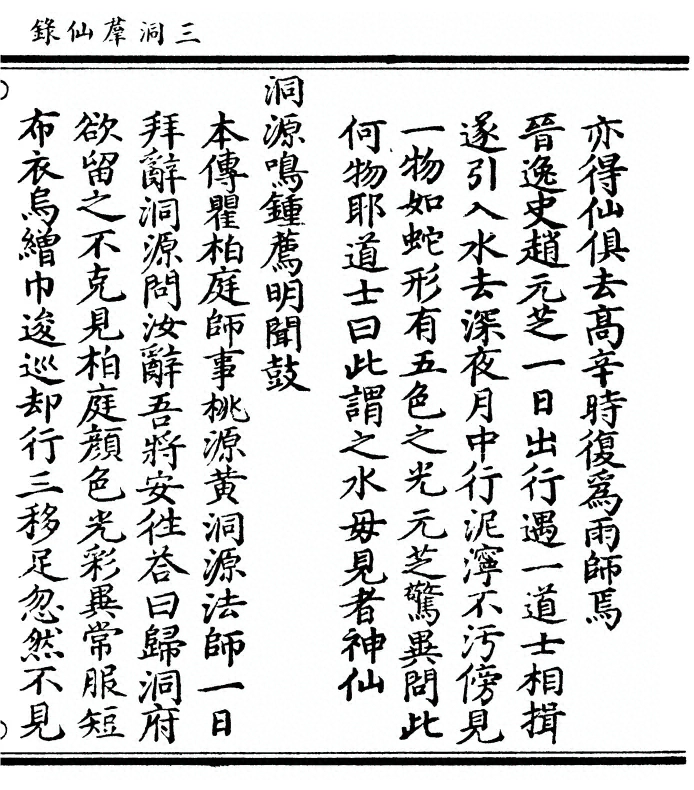 三洞羣仙錄
亦得仙俱去高辛時復爲雨師焉
晉逸史趙元芝一日出行遇一道士相揖
遂引入水去深夜月中行泥濘不污傍見
一物如蛇形有五色之光元芝驚異問此
何物耶道士曰此謂之水毋見者神仙
洞源鳴鍾薦明聞鼓
本傳瞿柏庭師事桃源黄洞源法師一日
拜辭洞源問汝辭吾將安徃荅曰歸洞府
欲留之不克見柏庭顔色光彩異常服短
布衣烏繒巾逡巡却行三移足忽然不見